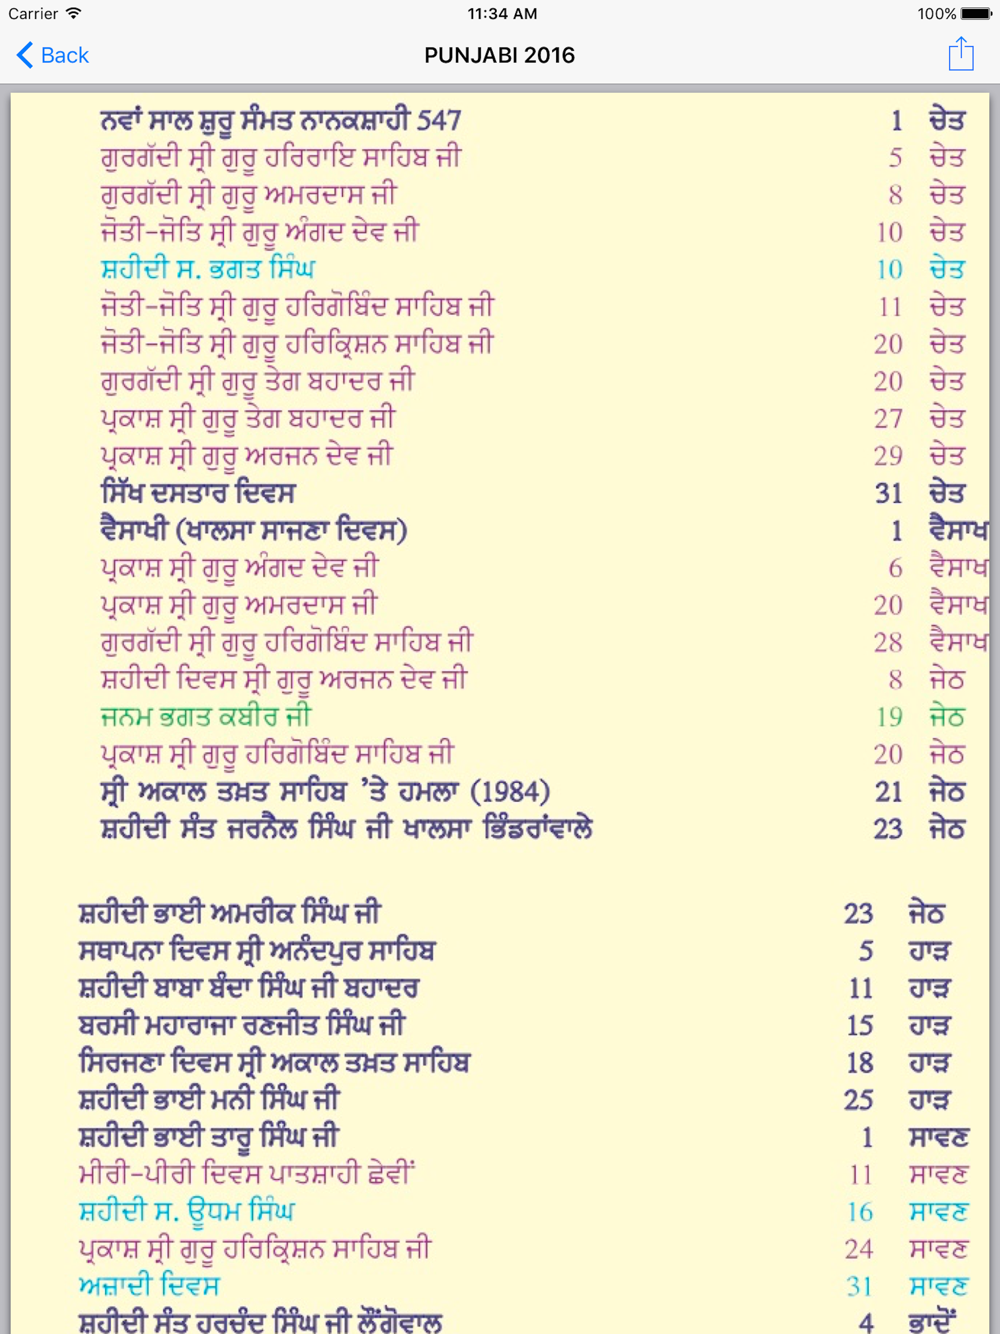 Carrier 11:34 AM 100%
Back PUNJABI 2016
ਨਵਾਂ ਸਾਲ ਸ਼ੁਰੂ ਸੰਮਤ ਨਾਨਕਸ਼ਾਹੀ 547 1 ਚੇਤ
ਗੁਰਗੱਦੀ ਸ੍ਰੀ ਗੁਰੂ ਹਰਿਰਾਇ ਸਾਹਿਬ ਜੀ 5 ਚੇਤ
ਗੁਰਗੱਦੀ ਸ੍ਰੀ ਗੁਰੂ ਅਮਰਦਾਸ ਜੀ 8 ਚੇਤ
ਜੋਤੀ-ਜੋਤਿ ਸ੍ਰੀ ਗੁਰੂ ਅੰਗਦ ਦੇਵ ਜੀ 10 ਚੇਤ
ਸ਼ਹੀਦੀ ਸ. ਭਗਤ ਸਿੰਘ 10 ਚੇਤ
ਜੋਤੀ-ਜੋਤਿ ਸ੍ਰੀ ਗੁਰੂ ਹਰਿਗੋਬਿੰਦ ਸਾਹਿਬ ਜੀ 11 ਚੇਤ
ਜੋਤੀ-ਜੋਤਿ ਸ੍ਰੀ ਗੁਰੂ ਹਰਿਕ੍ਰਿਸ਼ਨ ਸਾਹਿਬ ਜੀ 20 ਚੇਤ
ਗੁਰਗੱਦੀ ਸ੍ਰੀ ਗੁਰੂ ਤੇਗ ਬਹਾਦਰ ਜੀ 20 ਚੇਤ
ਪ੍ਰਕਾਸ਼ ਸ੍ਰੀ ਗੁਰੂ ਤੇਗ ਬਹਾਦਰ ਜੀ 27 ਚੇਤ
ਪ੍ਰਕਾਸ਼ ਸ੍ਰੀ ਗੁਰੂ ਅਰਜਨ ਦੇਵ ਜੀ 29 ਚੇਤ
ਸਿੱਖ ਦਸਤਾਰ ਦਿਵਸ 31 ਚੇਤ
ਵੈਸਾਖੀ (ਖਾਲਸਾ ਸਾਜਣਾ ਦਿਵਸ) 1 ਵੈਸਾਖ
ਪ੍ਰਕਾਸ਼ ਸ੍ਰੀ ਗੁਰੂ ਅੰਗਦ ਦੇਵ ਜੀ 6 ਵੈਸਾਖ
ਪ੍ਰਕਾਸ਼ ਸ੍ਰੀ ਗੁਰੂ ਅਮਰਦਾਸ ਜੀ 20 ਵੈਸਾਖ
ਗੁਰਗੱਦੀ ਸ੍ਰੀ ਗੁਰੂ ਹਰਿਗੋਬਿੰਦ ਸਾਹਿਬ ਜੀ 28 ਵੈਸਾਖ
ਸ਼ਹੀਦੀ ਦਿਵਸ ਸ੍ਰੀ ਗੁਰੂ ਅਰਜਨ ਦੇਵ ਜੀ 8 ਜੇਠ
ਜਨਮ ਭਗਤ ਕਬੀਰ ਜੀ 19 ਜੇਠ
ਪ੍ਰਕਾਸ਼ ਸ੍ਰੀ ਗੁਰੂ ਹਰਿਗੋਬਿੰਦ ਸਾਹਿਬ ਜੀ 20 ਜੇਠ
ਸ੍ਰੀ ਅਕਾਲ ਤਖ਼ਤ ਸਾਹਿਬ ’ਤੇ ਹਮਲਾ (1984) 21 ਜੇਠ
ਸ਼ਹੀਦੀ ਸੰਤ ਜਰਨੈਲ ਸਿੰਘ ਜੀ ਖਾਲਸਾ ਭਿੰਡਰਾਂਵਾਲੇ 23 ਜੇਠ
ਸ਼ਹੀਦੀ ਭਾਈ ਅਮਰੀਕ ਸਿੰਘ ਜੀ 23 ਜੇਠ
ਸਥਾਪਨਾ ਦਿਵਸ ਸ੍ਰੀ ਅਨੰਦਪੁਰ ਸਾਹਿਬ 5 ਹਾੜ
ਸ਼ਹੀਦੀ ਬਾਬਾ ਬੰਦਾ ਸਿੰਘ ਜੀ ਬਹਾਦਰ 11 ਹਾੜ
ਬਰਸੀ ਮਹਾਰਾਜਾ ਰਣਜੀਤ ਸਿੰਘ ਜੀ 15 ਹਾੜ
ਸਿਰਜਣਾ ਦਿਵਸ ਸ੍ਰੀ ਅਕਾਲ ਤਖ਼ਤ ਸਾਹਿਬ 18 ਹਾੜ
ਸ਼ਹੀਦੀ ਭਾਈ ਮਨੀ ਸਿੰਘ ਜੀ 25 ਹਾੜ
ਸ਼ਹੀਦੀ ਭਾਈ ਤਾਰੂ ਸਿੰਘ ਜੀ 1 ਸਾਵਣ
ਮੀਰੀ-ਪੀਰੀ ਦਿਵਸ ਪਾਤਸ਼ਾਹੀ ਛੇਵੀਂ 11 ਸਾਵਣ
ਸ਼ਹੀਦੀ ਸ. ਊਧਮ ਸਿੰਘ 16 ਸਾਵਣ
ਪ੍ਰਕਾਸ਼ ਸ੍ਰੀ ਗੁਰੂ ਹਰਿਕ੍ਰਿਸ਼ਨ ਸਾਹਿਬ ਜੀ 24 ਸਾਵਣ
ਅਜ਼ਾਦੀ ਦਿਵਸ 31 ਸਾਵਣ
ਸ਼ਹੀਦੀ ਸੰਤ ਹਰਚੰਦ ਸਿੰਘ ਜੀ ਲੌਂਗੋਵਾਲ 4 ਭਾਦੋਂ